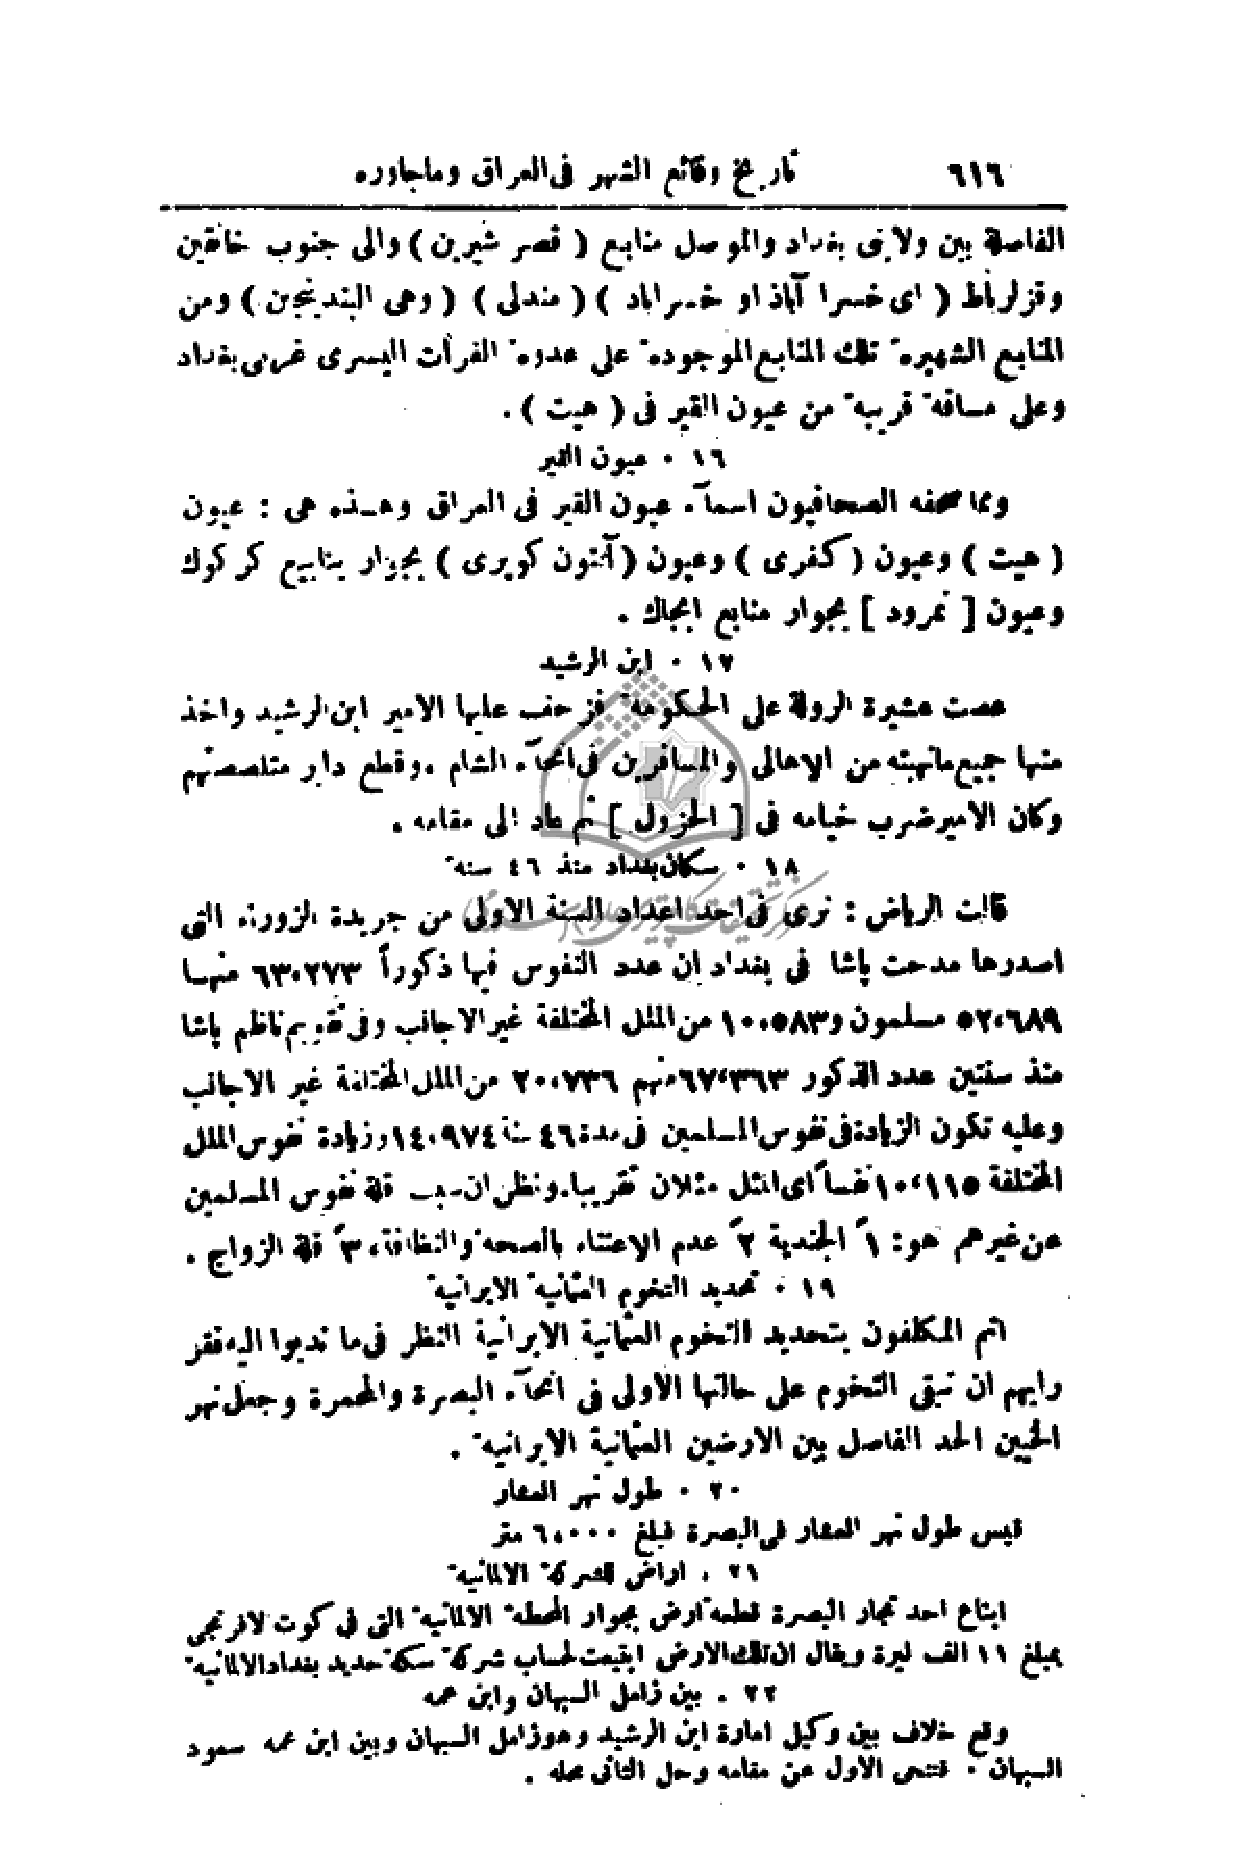 ٦١٦ تاريخ وقائع الشهر فى العراق وماجاوره
الفاصلة بين ولايتى بغداد والموصل منابع ( قصر شيرين ) والى جنوب خانقين
وقزلرباط ( اى خسرا آباذ او خسراباد ) ( مندلى ) ( وهى البندنيجين ) ومن
المنابع الشهيرة تلك المنابع الموجودة على عدوة الفرات اليسرى غربى بغداد
وعلى مسافة قريبة من عيون القير فى ( هيت ) .
١٦ ٠ عيون القير
ومما صحفه الصحافيون اسمآء عيون القير فى العراق وهـذه هى : عيون
( هيت ) وعيون ( كفرى ) وعيون ( آلتون كوپرى ) بجوار ينابيع كركوك
وعيون [ نمرود ] بجوار منابع
١٧ ٠ ابن الرشيد
عصت عشيرة الرولة على الحكومة فزحف عليها الامير ابن الرشيد واخذ
منها جميع مانهبته من الاهالى والمسافرين فى انحآء الشام ، وقطع دابر متلصصتهم
وكان الامير ضرب خيامه فى [ الحزول ] ثم عاد الى مقامه .
١٨ ٠ سكان بغداد منذ ٤٦ سنة
قالت الرياض : نرى فى احد اعداد السنة الاولى من جريدة الزوراء التى
اصدرها مدحت پاشا فى بغداد ان عدد النفوس فيها ذكوراً ٦٣،٢٧٣ منهـا
٥٢،٦٨٩ مسلمون و١٠،٥٨٣ من الملل المختلفة غير الاجانب وفى تقويم ناظم پاشا
منذ سنتين عدد الذكور ٦٧،٣٦٣ منهم ٢٠،٧٣٦ من الملل المختلفة غير الاجانب
وعليه تكون الزيادة فى نفوس المسلمين فى مدة ٤٦ سنة ١٤،٩٧٤ وزيادة نفوس الملل
المختلفة ١٠،١١٥ نفساً اى المثل مثلان تقريبا. ونظن ان سبب قلة نفوس المسلمين
عن غيرهم هو: ١ً الجندية ٢ً عدم الاعتناء بالصحة والنظافة، ٣ً قلة الزواج .
١٩ ٠ تحديد التخوم العثمانية الايرانية
اتم المكلفون بتحديد التخوم العثمانية الايرانية النظر فى ما ندبوا اليه فقر
رايهم ان تبقى التخوم على حالتها الاولى فى انحآء البصرة والمحمرة وجعل نهر
الخيين الحد الفاصل بين الارضين العثمانية الايرانية .
٢٠ ٠ طول نهر العشار
قيس طول نهر العشار فى البصرة فبلغ ٦،٠٠٠ متر
٢١ . اراض للشركة الالمانية
ابتاع احد تجار البصرة قطعة ارض بجوار المحطة الالمانية التى فى كوت لافرنجى
بمبلغ ١١ الف ليرة ويقال ان تلك الارض ابتيعت لحساب شركة سكة حديد بغداد الالمانية
٢٢ . بين زامل السبهان وابن عمه
وقع خلاف بين وكيل امارة ابن الرشيد وهو زامل السبهان وبين ابن عمه سعود
السبهان ٠ فتنحى الاول عن مقامه وحل الثانى محله .